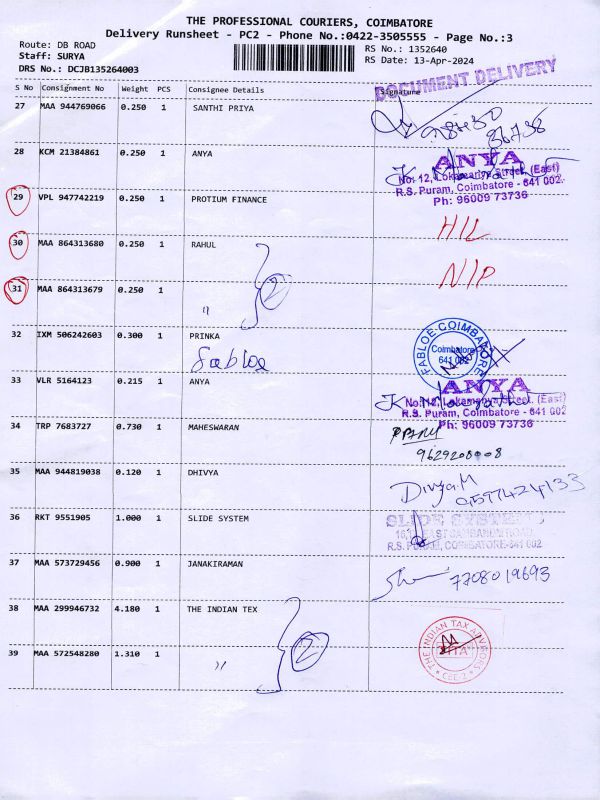 THE PROFESSIONAL COURIERS, COIMBATORE
Delivery Runsheet - PC2 - Phone No.:0422-3505555 - Page No.:3
Route: DB ROAD
Staff: SURYA
DRS No.: DCJB135264003
RS No.: 1352640
RS Date: 13-Apr-2024
DOCUMENT DELIVERY
S No Consignment No Weight PCS Consignee Details Signature
27 MAA 944769066 0.250 1 SANTHI PRIYA
28 KCM 21384861 0.250 1 ANYA
ANYA
No: 12, Lokamanya Street, (East)
R.S. Puram, Coimbatore - 641 002.
Ph: 96009 73736
29 VPL 947742219 0.250 1 PROTIUM FINANCE
30 MAA 864313680 0.250 1 RAHUL
N/P
31 MAA 864313679 0.250 1 "
2
32 IXM 506242603 0.300 1 PRINKA
Fabloe
FABLOE-COIMBATORE
Coimbatore
641 002
33 VLR 5164123 0.215 1 ANYA
ANYA
No: 12, Lokamanya Street, (East)
R.S. Puram, Coimbatore - 641 002
Ph: 96009 73736
34 TRP 7683727 0.730 1 MAHESWARAN
9629208008
35 MAA 944819038 0.120 1 DHIVYA
Divya.M
36 RKT 9551905 1.000 1 SLIDE SYSTEM
SLIDE SYSTEMS
R.S. PURAM, COIMBATORE-641 002
37 MAA 573729456 0.900 1 JANAKIRAMAN
7708019693
38 MAA 299946732 4.180 1 THE INDIAN TEX
THE INDIAN TAX ADVISORS
CBE-2
39 MAA 572548280 1.310 1 "
2